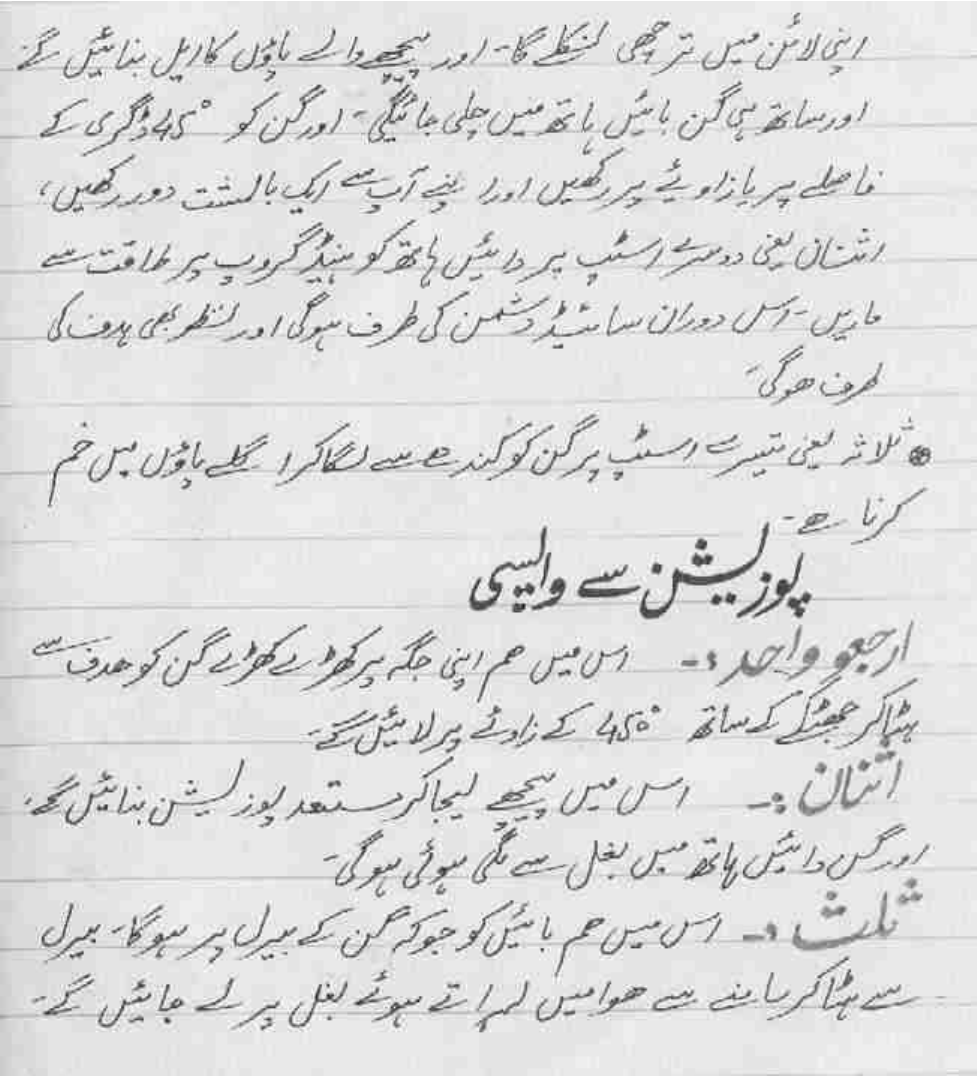 اپنی لائن میں ترچھی نکلے گا۔ اور پیچھے والے پاؤں کا ایل بنائیں گے
اور ساتھ ہی گن بائیں ہاتھ میں چلی جائیگی۔ اور گن کو °45 ڈگری کے
فاصلے پر یا زاویئے پر رکھیں اور اپنے آپ سے ایک بالشت دور رکھیں،
اثنان یعنی دوسرے اسٹپ پر دائیں ہاتھ کو ہینڈ گروپ پر طاقت سے
ماریں۔ اس دوران سائیڈ دشمن کی طرف ہوگی اور نظر بھی ہدف کی
طرف ھوگی۔
ثلاثہ یعنی تیسرے اسٹپ پر گن کو کندھے سے لگا کر اگلے پاؤں میں خم
کرنا ھے۔
پوزیشن سے واپسی
ارجعو واحد :۔ اس میں ھم اپنی جگہ پر کھڑے کھڑے گن کو ھدف سے
ہٹا کر جھٹکے کے ساتھ °45 کے زاوئے پر لائیں گے۔
اثنان :۔ اس میں پیچھے لیجا کر مستعد پوزیشن بنائیں گے۔
اور گن دائیں ہاتھ میں بغل سے لگی ہوئی ہوگی۔
ثلث :۔ اس میں ھم بائیں کو جو کہ گن کے بیرل پر ہوگا۔ بیرل
سے ہٹا کر سامنے سے ھوا میں لہراتے ہوئے بغل پر لے جائیں گے۔